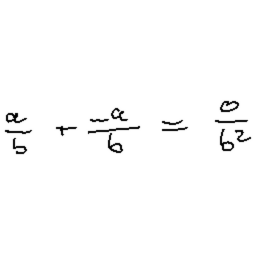 a/b + -a/b = 0/b²